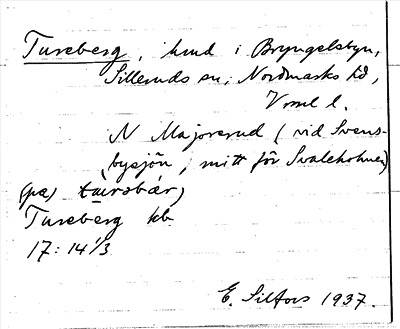 Tureberg, hmd i Bryngelsbyn,
Silleruds sn, Nordmarks hd,
Vrml l.
N Majorsrud (vid Svens-
bysjön, mitt för Svaleholmen)
(på)
Tureberg kb.
17: 14/3
E. Silfors 1937.